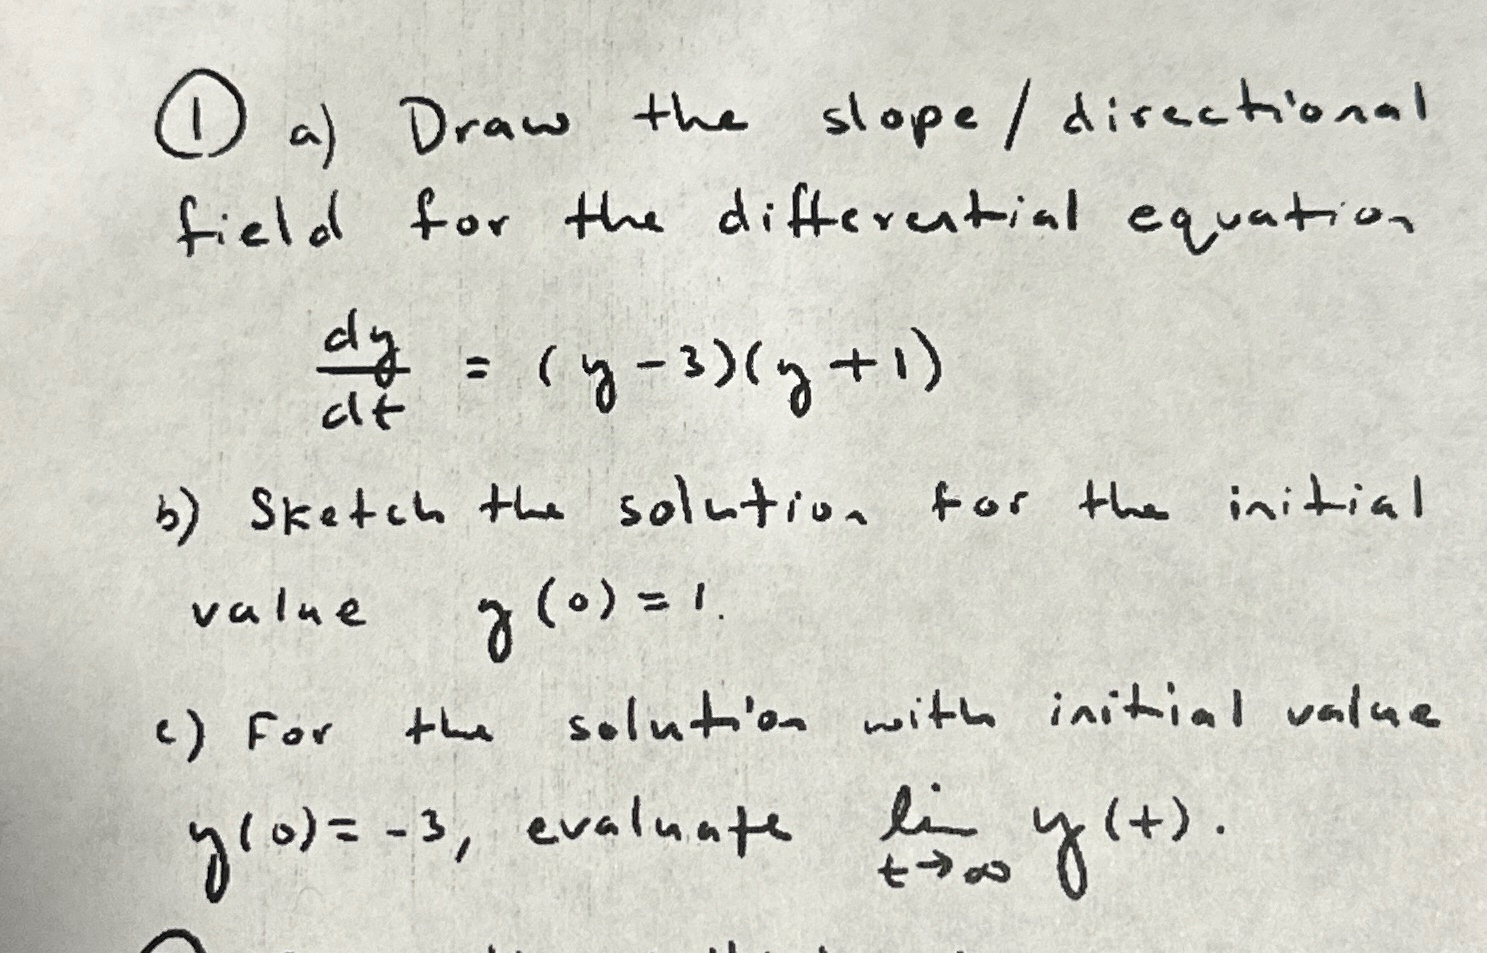 ① a) Draw the slope/directional
field for the differential equation
dy/dt = (y-3)(y+1)
b) Sketch the solution for the initial
value y(0)=1.
c) For the solution with initial value
y(0)=-3, evaluate lim t→∞ y(t).